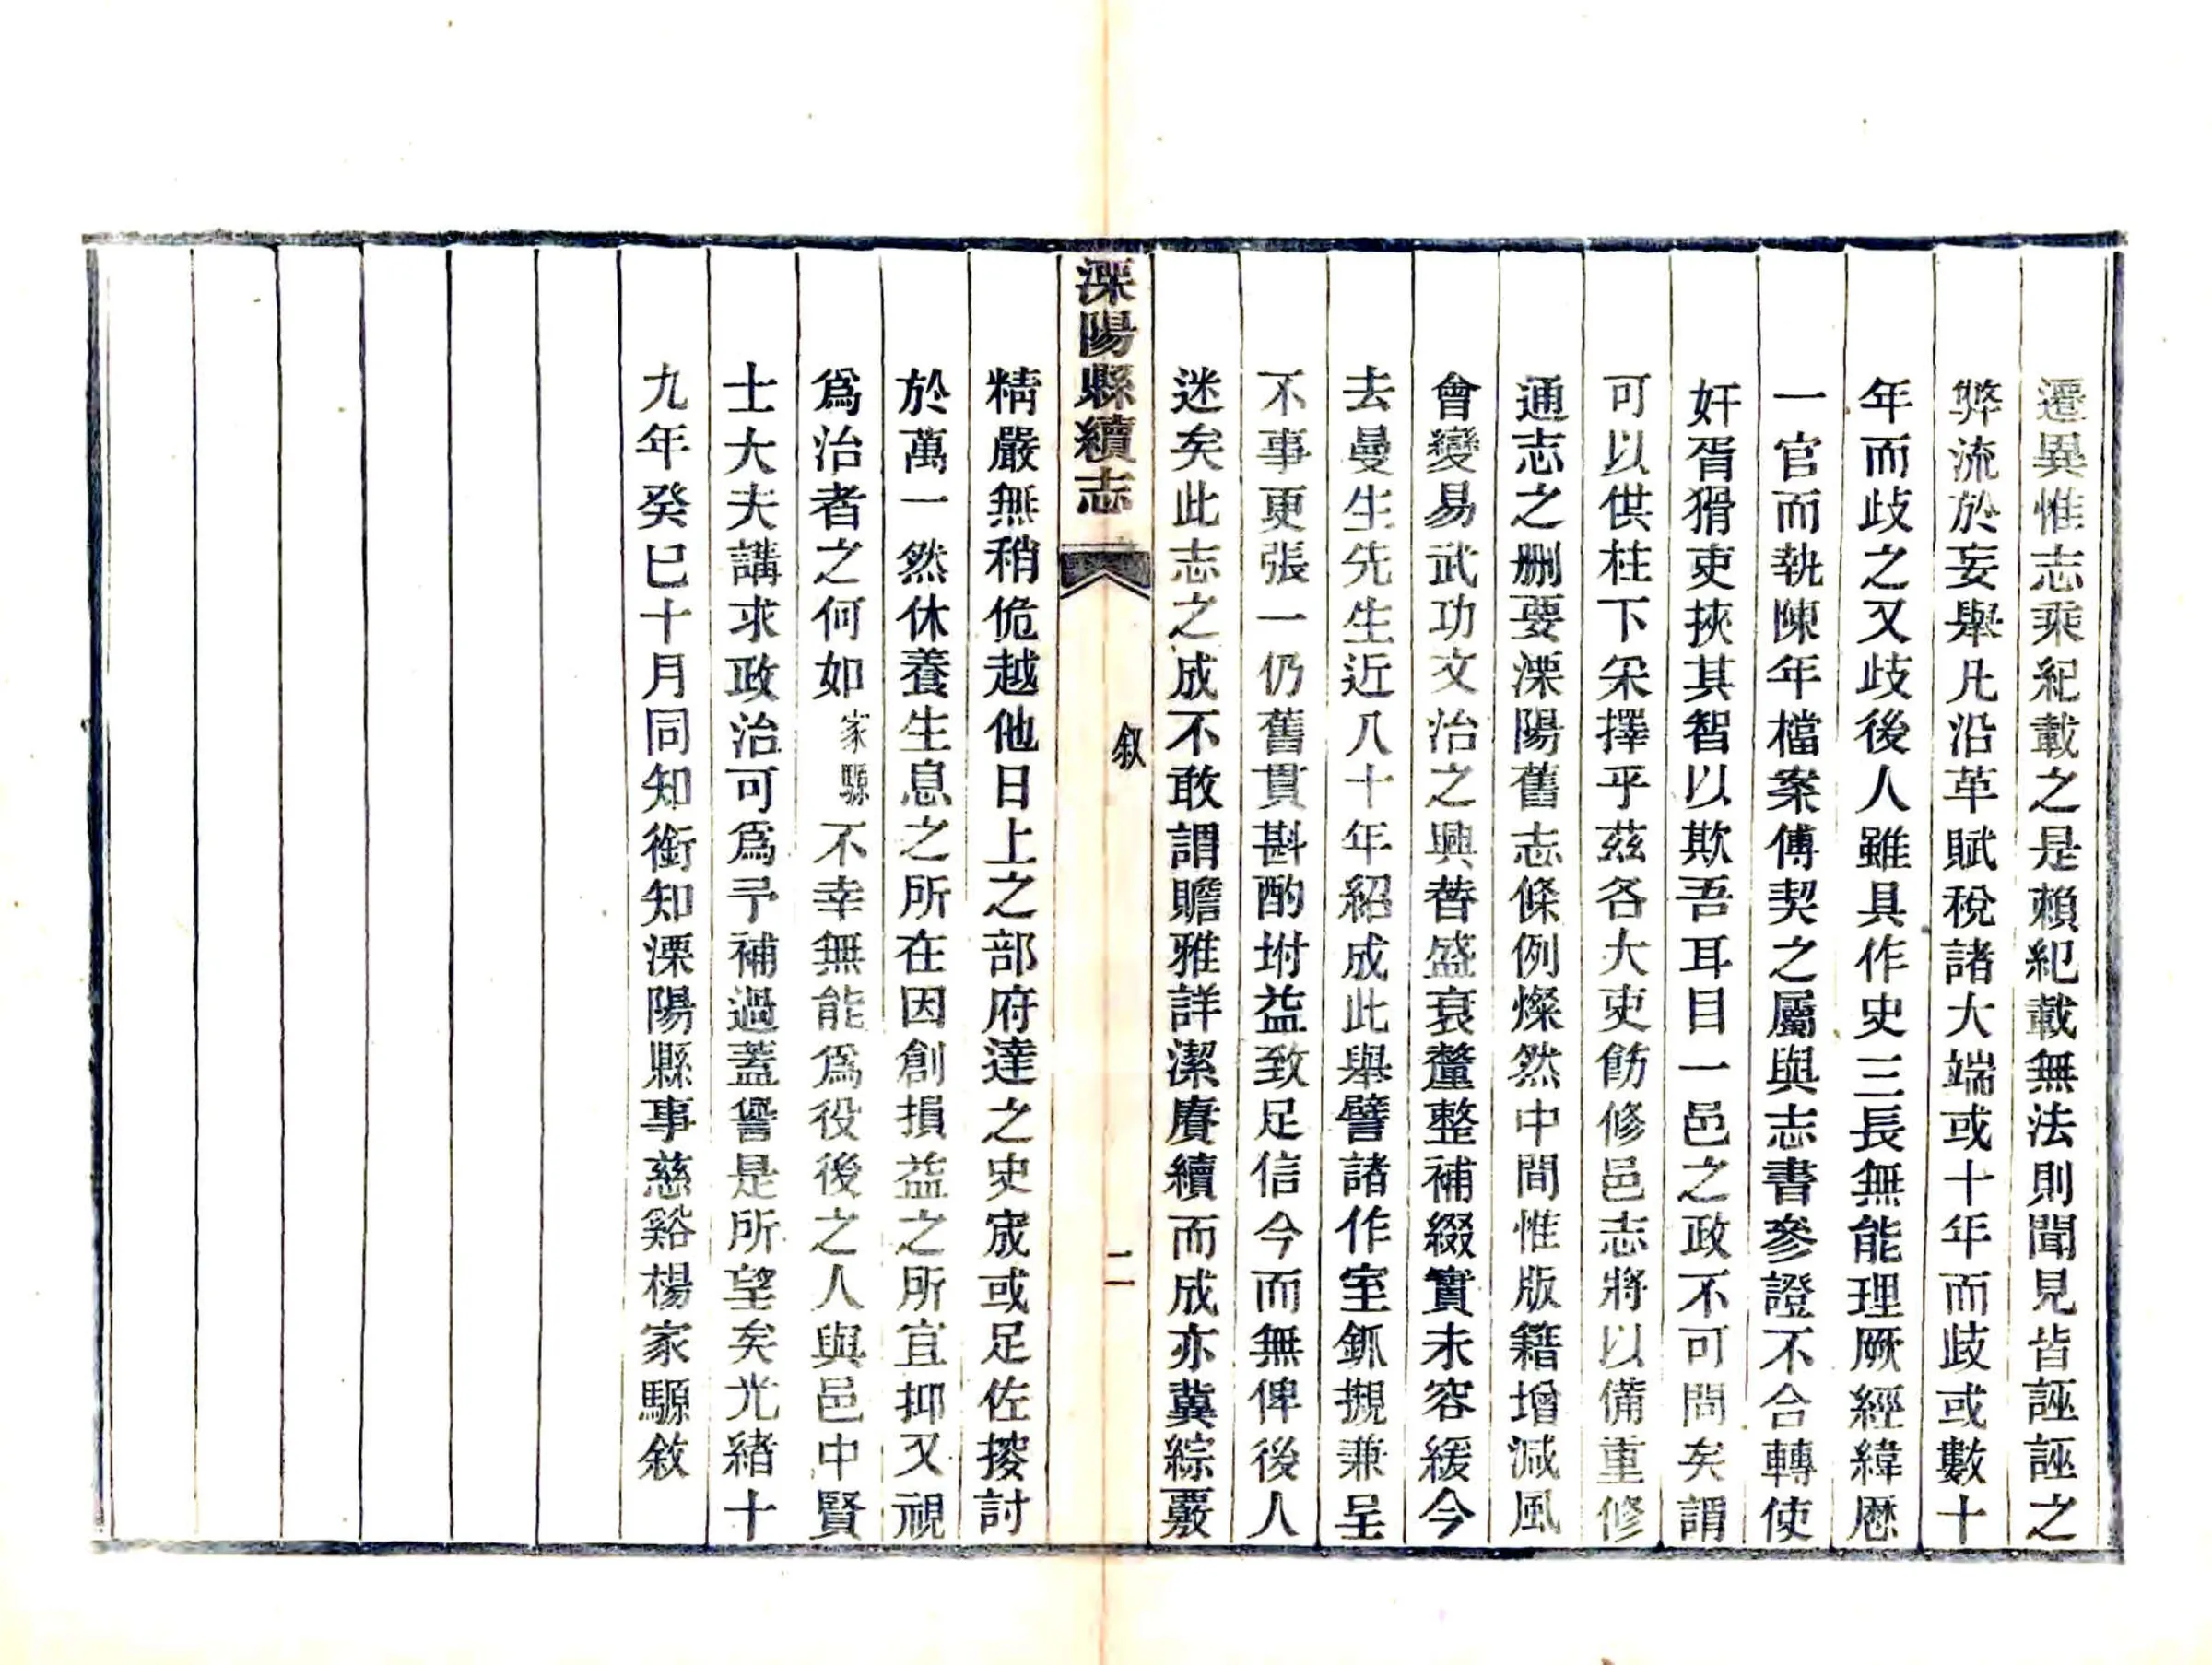 遷異惟志乘紀載之是賴紀載無法則聞見皆誣誣之
弊流於妄舉凡沿革賦稅諸大端或十年而歧或數十
年而歧之又歧後人雖具作史三長無能理厥經緯歷
一官而執陳年檔案傅契之屬與志書參證不合轉使
奸胥猾吏挾其智以欺吾耳目一邑之政不可問矣謂
可以供柱下采擇乎茲各大吏飭修邑志將以備重修
通志之刪要溧陽舊志條例燦然中間惟版籍增減風
會變易武功文治之興替盛衰釐整補綴實未容緩今
去曼生先生近八十年紹成此舉譬諸作室釽摫兼呈
不事更張一仍舊貫斟酌坿益致足信今而無俾後人
迷矣此志之成不敢謂贍雅詳潔賡續而成亦冀綜覈
溧陽縣續志
敘
二
精嚴無稍佹越他日上之部府達之史宬或足佐搜討
於萬一然休養生息之所在因創損益之所宜抑又視
爲治者之何如家驤不幸無能爲役後之人與邑中賢
士大夫講求政治可爲予補過蓋嘗是所望矣光緒十
九年癸巳十月同知銜知溧陽縣事慈谿楊家驤敘